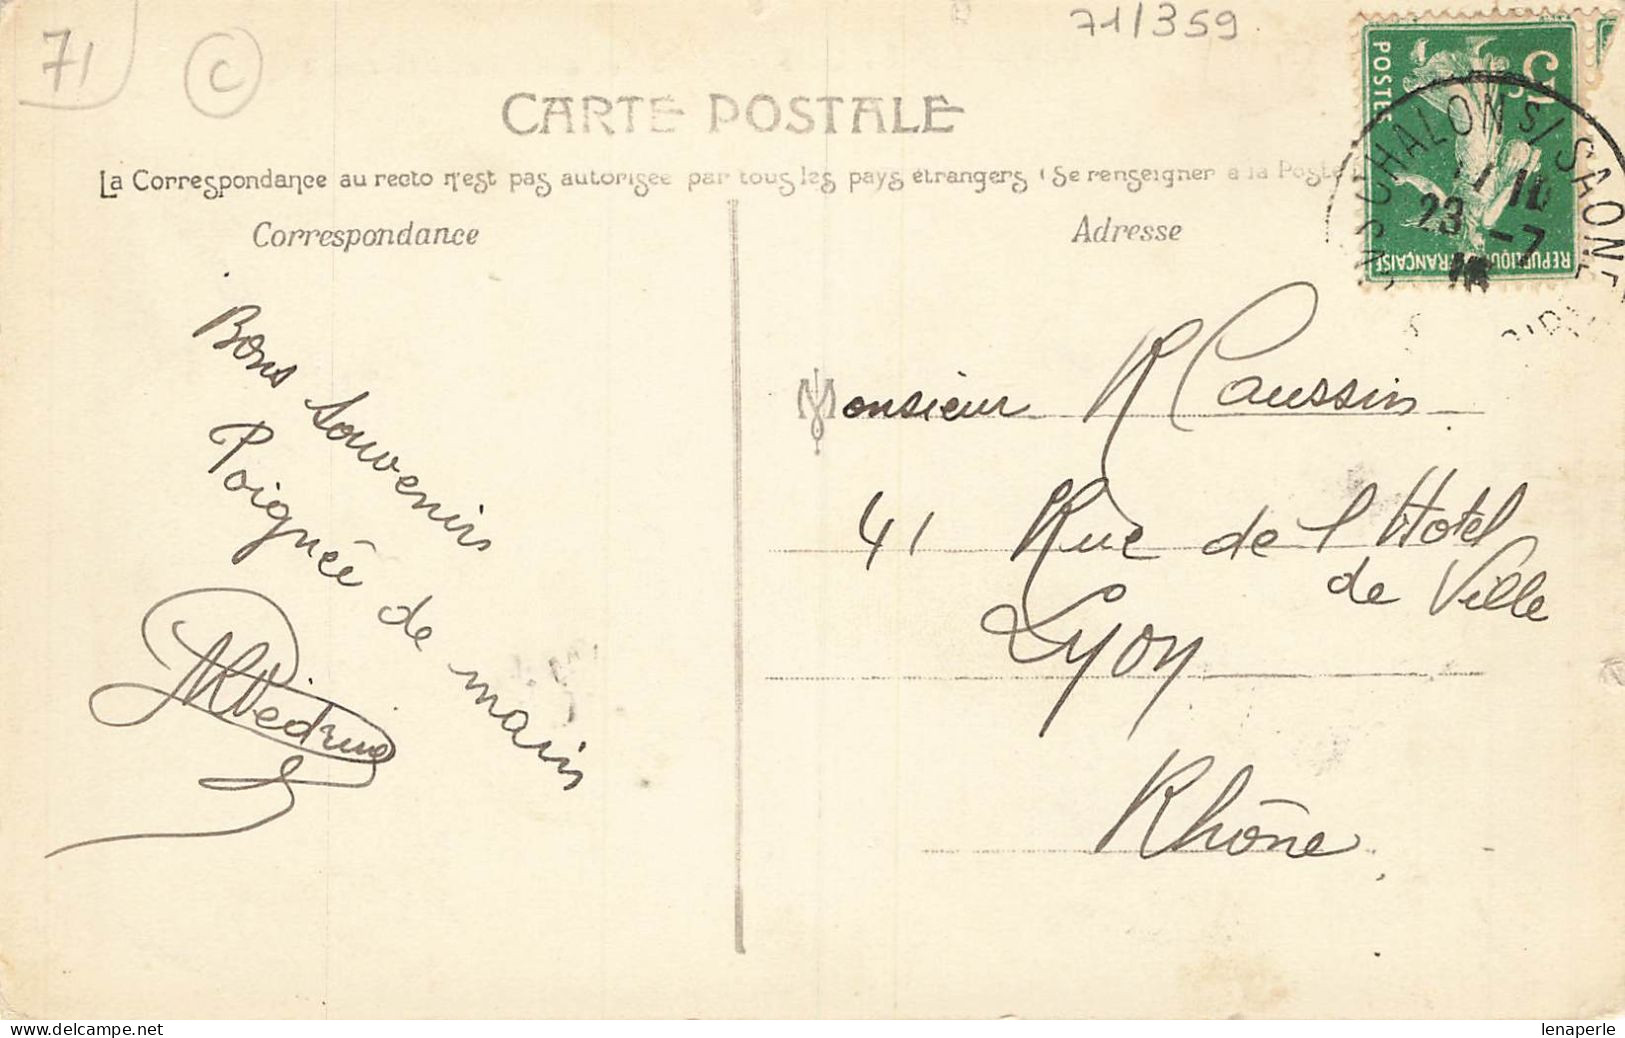 71
C
71/359
CARTE POSTALE
La Correspondance au recto n'est pas autorisée par tous les pays étrangers (Se renseigner à la Poste
Correspondance
Adresse
POSTES
5
RÉPUBLIQUE FRANÇAISE
CHALON S/ SAONE
23 -7
Bons souvenirs
Poignée de main
Monsieur R Caussin
41 Rue de l'Hotel
de Ville
Lyon
Rhône
lenaperle
www.delcampe.net